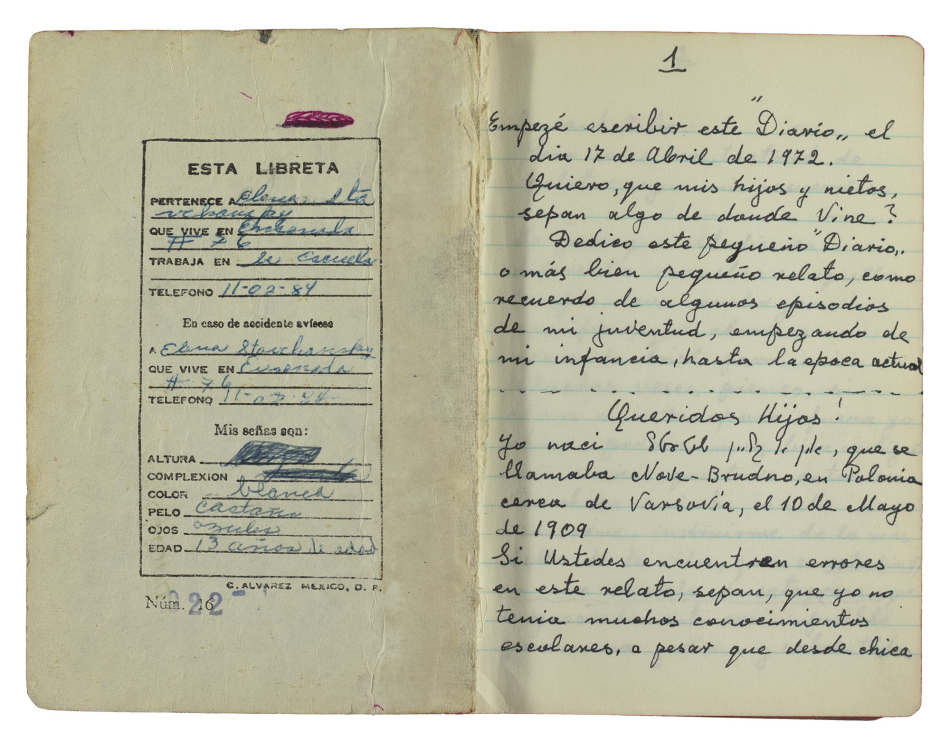 ESTA LIBRETA
PERTENECE A Elena Sta
wchansky
QUE VIVE EN Ensenada
# 76
TRABAJA EN la escuela
TELEFONO 11-02-84
En caso de accidente avísese
A Elena Stawchansky
QUE VIVE EN Ensenada
# 76
TELEFONO 11-02-84
Mis señas son:
ALTURA
COMPLEXION
COLOR blanca
PELO castaño
OJOS azules
EDAD 13 años de edad
C. ALVAREZ MEXICO, D. F.
Núm. 16
022-
1
Empezé escribir este "Diario„ el
dia 17 de Abril de 1972.
Quiero, que mis hijos y nietos,
sepan algo de donde Vine?
Dedico este pequeño "Diario„
o más bien pequeño relato, como
recuerdo de algunos episodios
de mi juventud, empezando de
mi infancia, hasta la epoca actual
Queridos Hijos!
Yo naci, que se
llamaba Nove-Brudno, en Polonia
cerca de Varsovia, el 10 de Mayo
de 1909
Si Ustedes encuentren errores
en este relato, sepan, que yo no
tenia muchos conocimientos
escolares, a pesar que desde chica